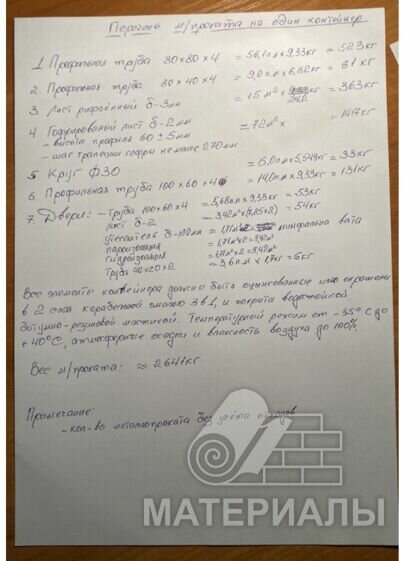 Перечень м/проката на один контейнер
1. Профильная труба 80×80×4 = 56,1 пм × 9,33 кг = 523 кг
2. Профильная труба 80×40×4 = 9,0 пм × 6,82 кг = 61 кг
3. Лист рифлённый δ-3мм = 15 м² × 24,2 = 363 кг
4. Гофрированый лист δ-2мм = 72 м² × = 1417 кг
- высота профиля 60 ± 5мм
- шаг трапеции гофры не менее 270мм
5. Круг Ф30 = 6,0 пм × 5,549 кг = 33 кг
6. Профильная труба 100×60×4 = 14,0 пм × 9,33 кг = 131 кг
7. Двери: - Труба 100×60×4 = 5,68 пм × 9,33 кг = 53 кг
лист δ-2 = 3,42 м² (7,85×2) = 54 кг
утеплитель δ-100мм = 1,71 м² минеральна вата
пароизоляция = 1,71 м² × 2 = 3,42 м²
гидроизоляция = 1,71 м² × 2 = 3,42 м²
Труба 40×20×2 = 3,6 п.м × 1,7 кг = 6 кг
Все элементы контейнера должны быть оцинкованные или окрашены
в 2 слоя корабельной эмалью 3 в 1, и покрыта водостойкой
битумно-резиновой мастикой. Температурный режим от -35°С до
+40°С, атмосферные осадки и влажность воздуха до 100%.
Вес м/проката: ≈ 2641 кг
Примечание:
- кол-во металлопроката без учёта отходов
МАТЕРИАЛЫ